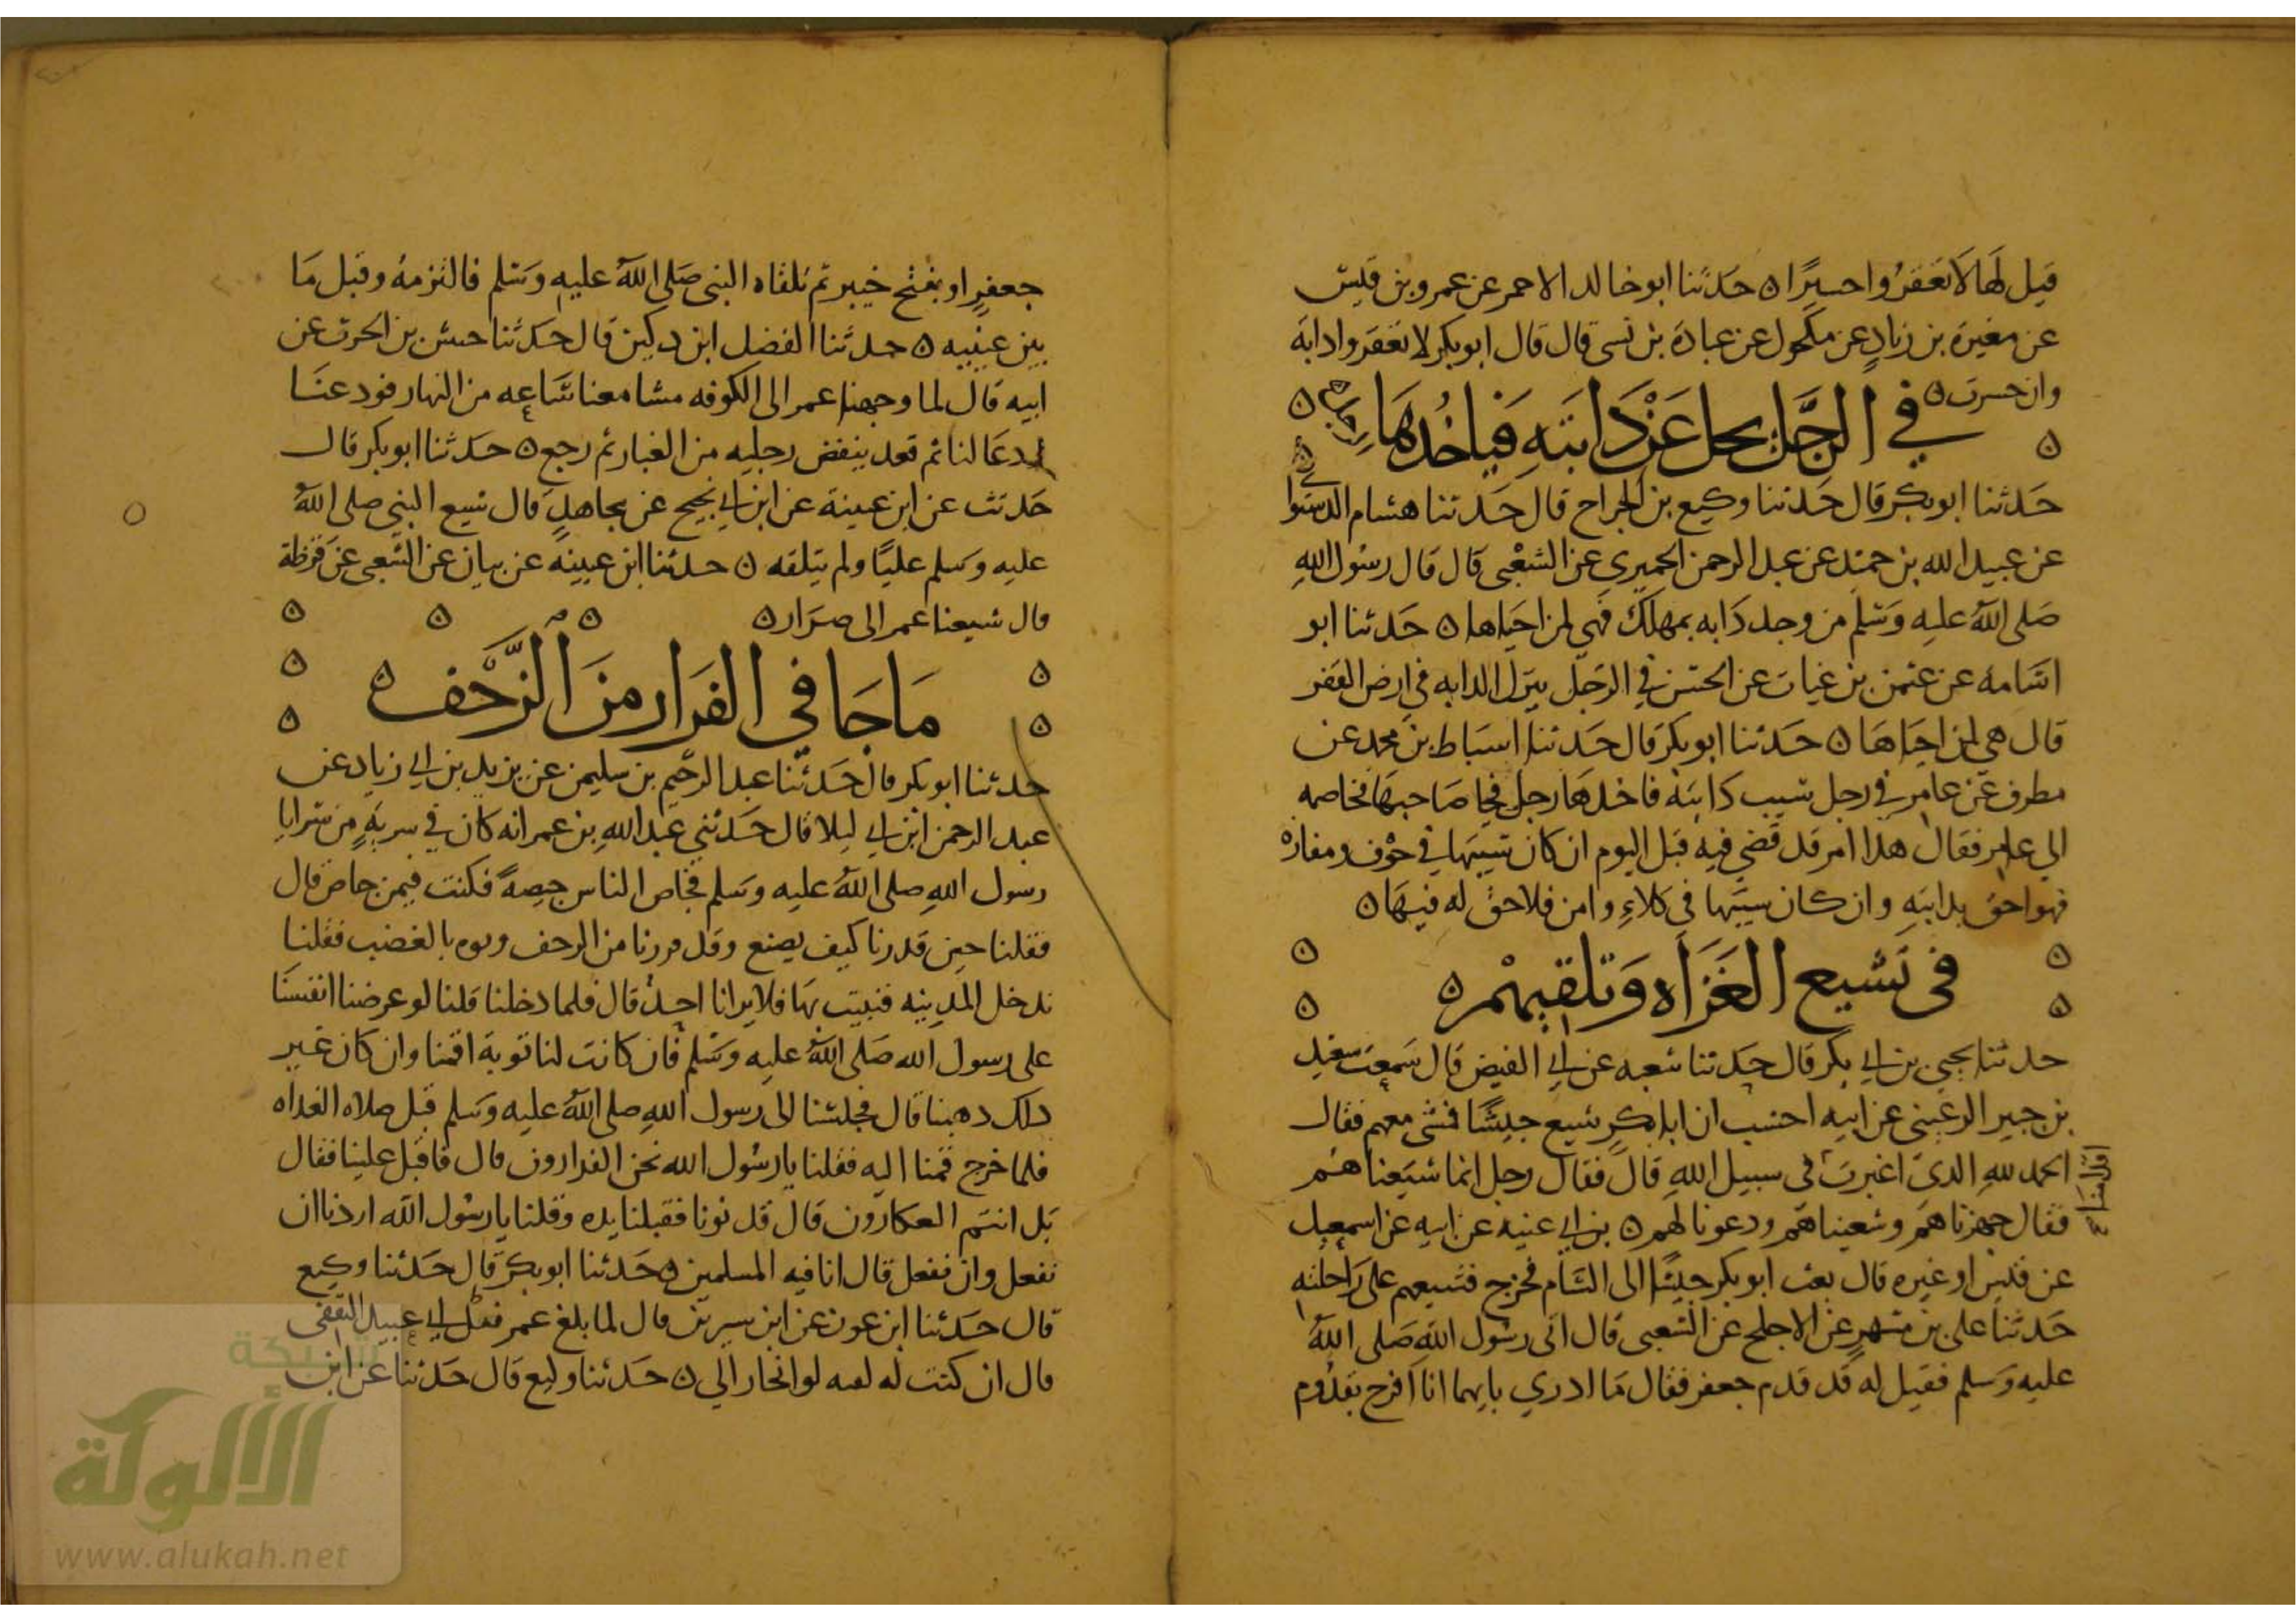 قيل لها لا تعقروا حسيرا ه حدثنا ابو خالد الاحمر عن عمرو بن قيس
عن مغيرة بن زياد عن مكحول عن عبادة بن نسى قال قال ابو بكر لا تعقروا دابة
وان حسرت ه
في الرجل يحل عن دابته فياخدها
حدثنا ابو بكر قال حدثنا وكيع بن الجراح قال حدثنا هشام الدستوا
عن عبيد الله بن حميد عن عبد الرحمن الحميري عن الشعبي قال قال رسول الله
صلى الله عليه وسلم من وجد دابه بمهلك فهي لمن احياها ه حدثنا ابو
اسامه عن عثمن بن غياث عن الحسن في الرجل يترك الدابه في ارض القفر
قال هي لمن احياها ه حدثنا ابو بكر قال حدثنا اسباط بن محمد عن
مطرف عن عامر في رجل سيب دابته فاخدها رجل فجا صاحبها فخاصمه
الي عامر فقال هدا امر قد قضي فيه قبل اليوم ان كان سيبها في خوف ومفازه
فهو احق بدابته وان كان سيبها في كلاء وامن فلا حق له فيها ه
في تشييع الغزاه وتلقيهم ه
حدثنا يحيى بن ابي بكر قال حدثنا شعبه عن ابي الفيض قال سمعت سعيد
بن جبير الرعيني عن ابيه احسب ان ابا بكر شيع جيشا فمشى معهم فقال
الحمد لله الدي اغبرت في سبيل الله قال فقال رجل انما شيعناهم
اقدامنا
فقال جهزناهم وشيعناهم ودعونا لهم ه بن ابي عنيه عن ابيه عن اسمعيل
عن قيس او غيره قال بعث ابو بكر جيشا الى الشام فخرج فشيعهم على راحلته
حدثنا علي بن مسهر عن الاجلح عن الشعبي قال اتى رسول الله صلى الله
عليه وسلم فقيل له قد قدم جعفر فقال ما ادري بايهما انا افرح بقدوم
جعفر او بفتح خيبر ثم تلقاه النبي صلى الله عليه وسلم فالتزمه وقبل ما
بين عينيه ه حدثنا الفضل ابن دكين قال حدثنا حنش بن الحرث عن
ابيه قال لما وجهنا عمر الى الكوفه مشا معنا ساعه من النهار فودعنا
ودعا لنا ثم قعد ينفض رجليه من الغبار ثم رجع ه حدثنا ابو بكر قال
حدثت عن ابن عيينة عن ابن ابي نجيح عن مجاهد قال شيع النبي صلى الله
عليه وسلم عليا ولم يتلقه ه حدثنا ابن عيينه عن بيان عن الشعبي عن قرظة
قال شيعنا عمر الى صرار ه
ما جا في الفرار من الزحف ه
حدثنا ابو بكر قال حدثنا عبد الرحيم بن سليمن عن يزيد بن ابي زياد عن
عبد الرحمن ابن ابي ليلا قال حدثني عبد الله بن عمر انه كان في سرية من سرايا
رسول الله صلى الله عليه وسلم فحاص الناس حيصة فكنت فيمن حاص قال
فقلنا حين قدرنا كيف يصنع وقد فررنا من الزحف وبوء بالغضب فقلنا
ندخل المدينه فنبيت بها فلا يرانا احد قال فلما دخلنا قلنا لو عرضنا انفسنا
على رسول الله صلى الله عليه وسلم فان كانت لنا توبة اقمنا وان كان غير
دلك دهبنا قال فجلسنا الى رسول الله صلى الله عليه وسلم قبل صلاه الغداه
فلما خرج قمنا اليه فقلنا يا رسول الله نحن الفرارون قال فاقبل علينا فقال
بل انتم العكارون قال قد نونا فقبلنا يده وقلنا يا رسول الله اردنا ان
نفعل وان نفعل قال انا فيه المسلمين ه حدثنا ابو بكر قال حدثنا وكيع
قال حدثنا ابن عون عن ابن سيرين قال لما بلغ عمر قتل ابي عبيد الثقفي
قال ان كنت له لفيه لو انحاز الي ه حدثنا وكيع قال حدثنا عن ابن
شبكة
الألوكة
www.alukah.net